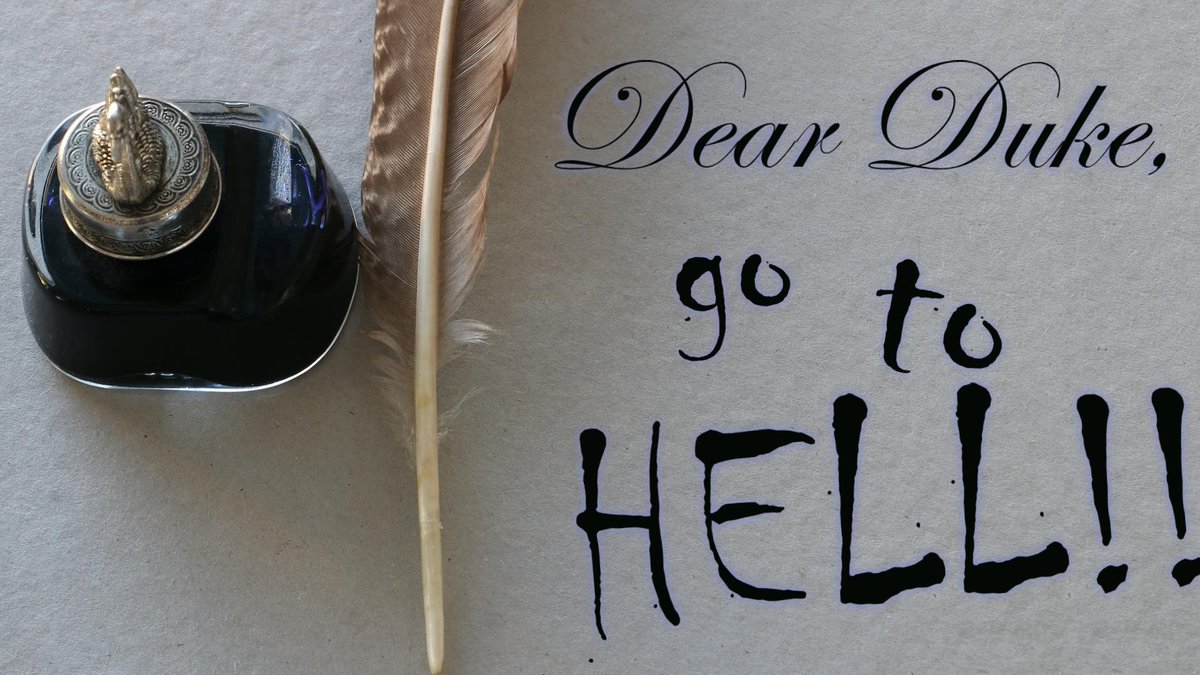 Dear Duke,
go to
HELL!!